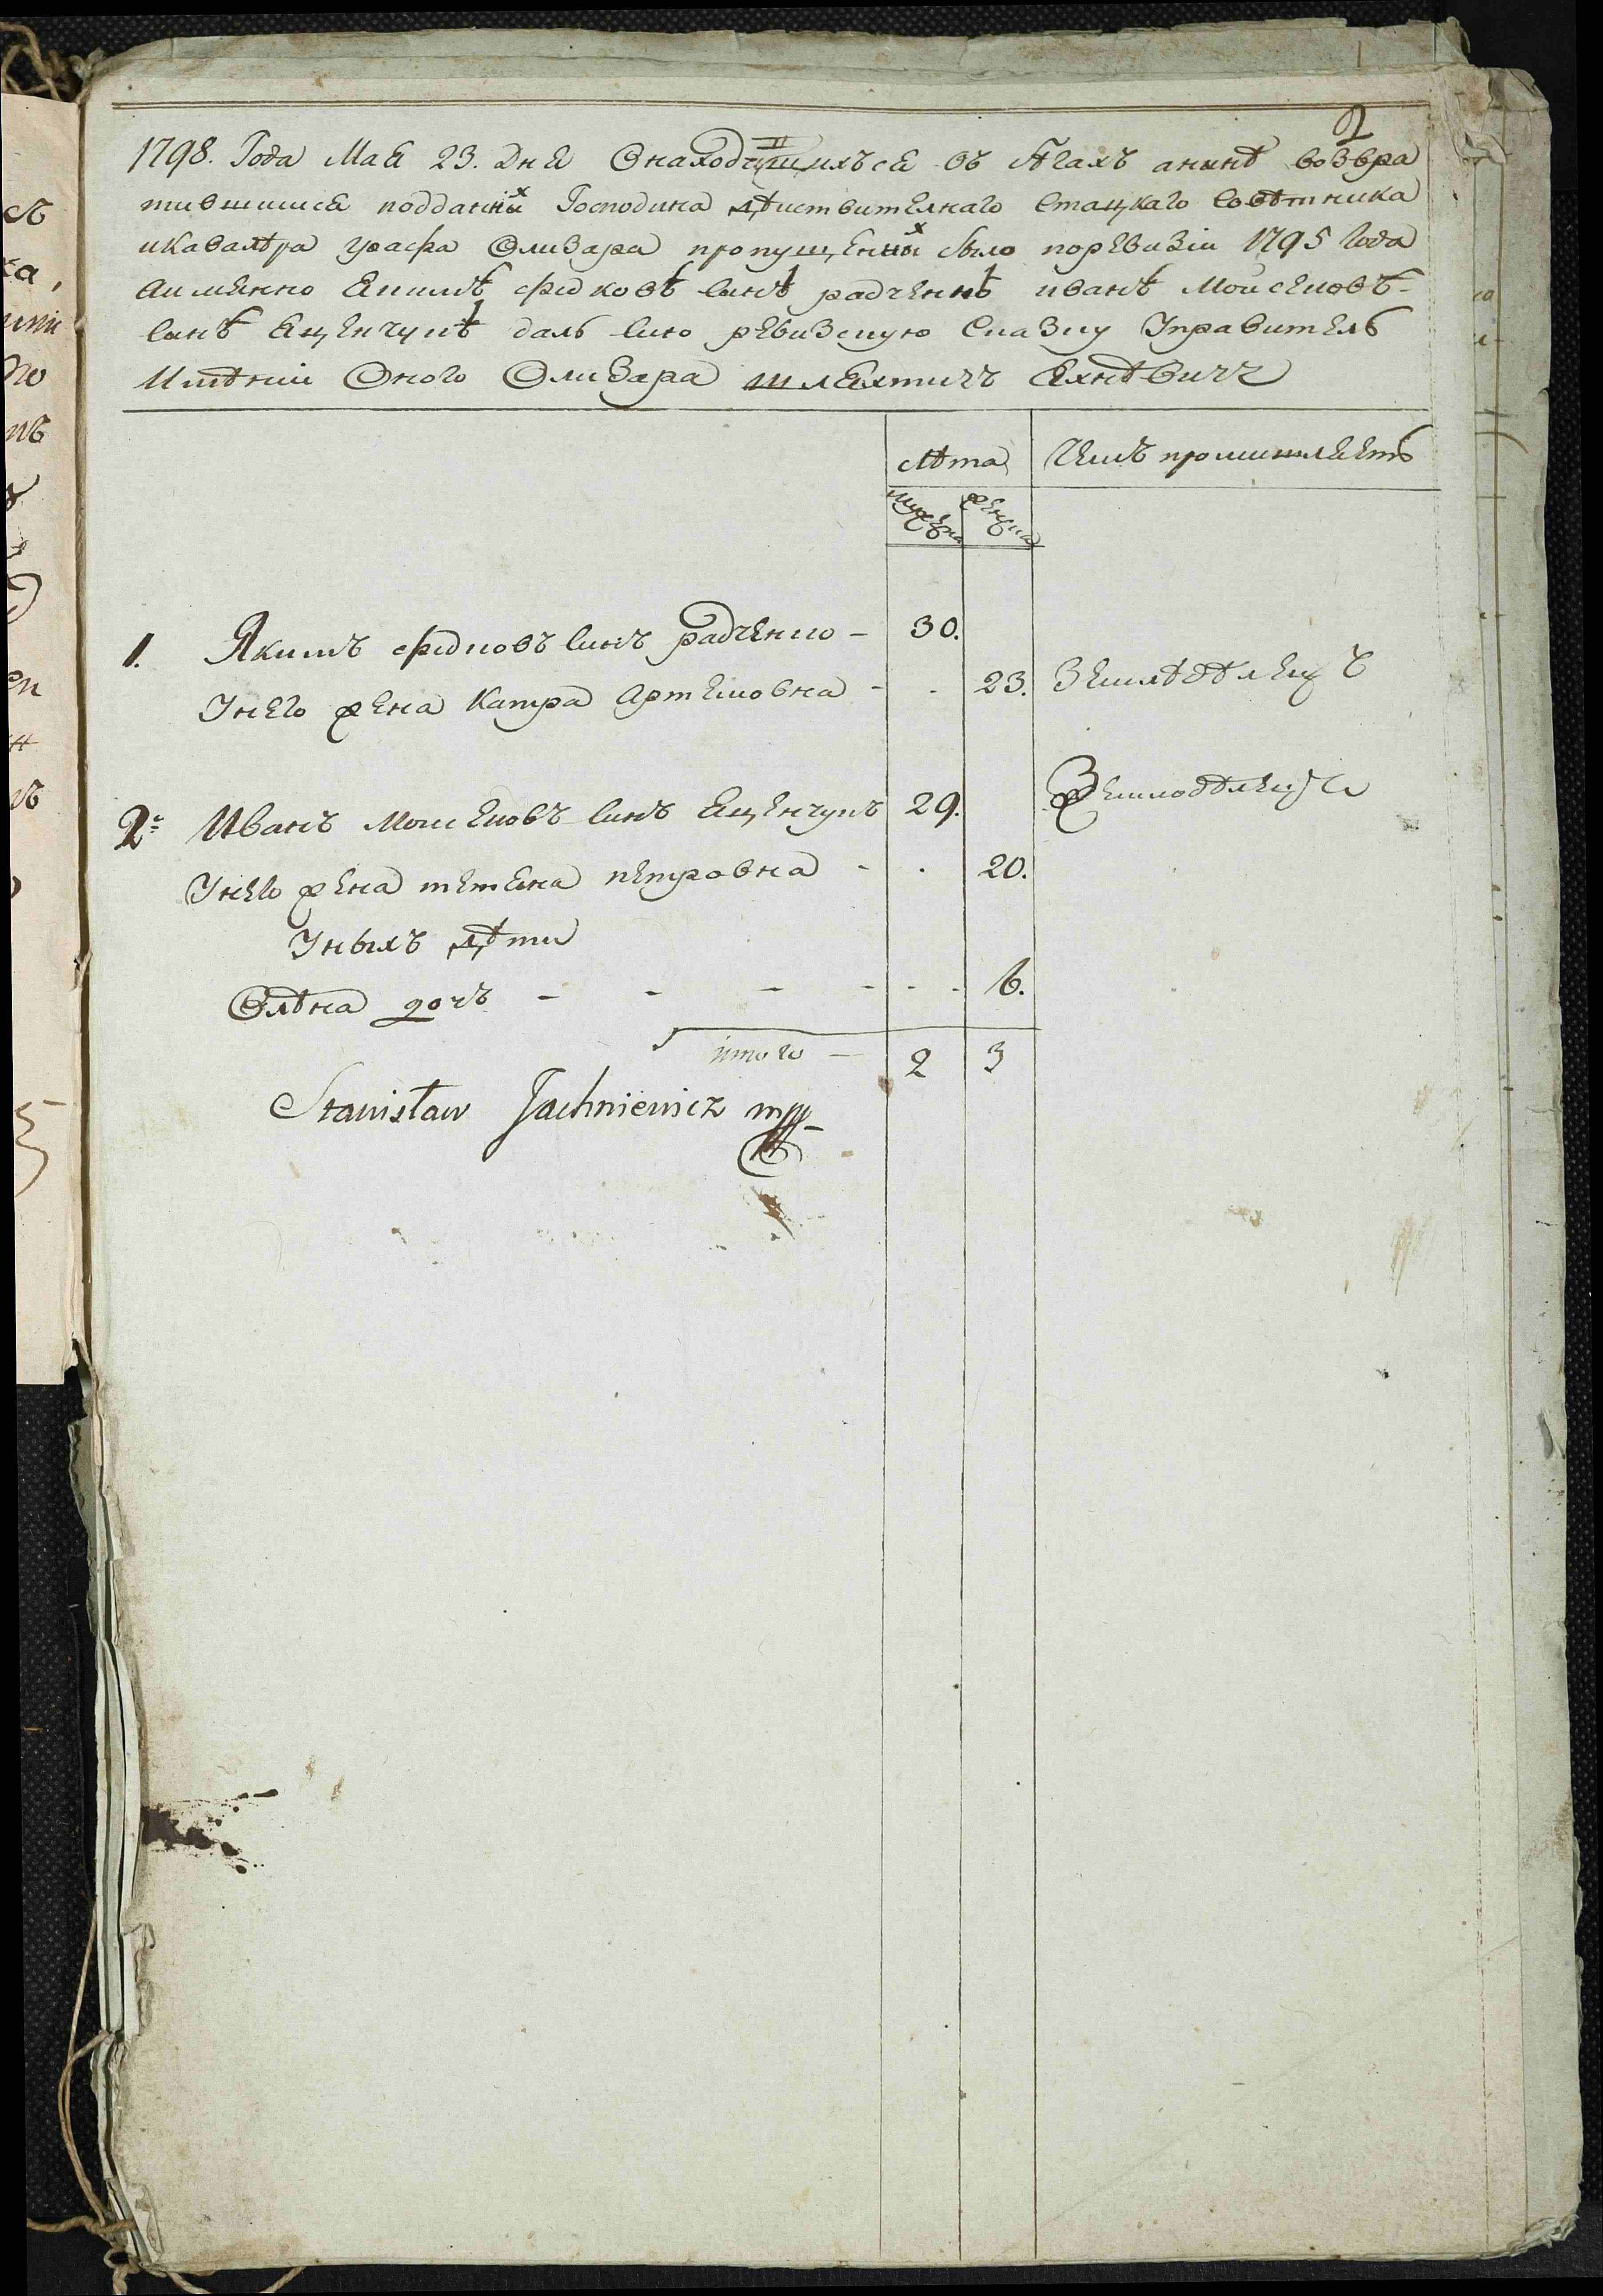 2
1798. Года Мая 23. Дня Онаходящихъся въ бѣгахъ анынѣ возвра
тившихся подданных Господина дѣиствителнаго Стацкаго Совѣтника
икавалѣра графа Оливара пропущенных было поревизіи 1795 Года
аимянно Якимѣ федковѣ синѣ радченкѣ иванѣ Мойсеиовѣ
синѣ Яценчукѣ далъ сию ревизскую Сказку Управитель
Имѣнии Оного Оливара шляхтичъ Яхнѣвичъ
лѣта Чемъ промишляетъ
мужеска женска
1. Якимъ федковъ синъ радченко - 30.
Унего жена Катра Артемовна - - 23. Землѣдѣлецъ
2. Иванъ Моисеиовъ синъ Яценчукъ 29. Землодѣлецъ
Унего жена тетяна петровна - - 20.
Уныхъ дѣти
Олѣна дочъ - - - - - - 6.
итого - 2 3
Stanisław Jachniewicz mpp